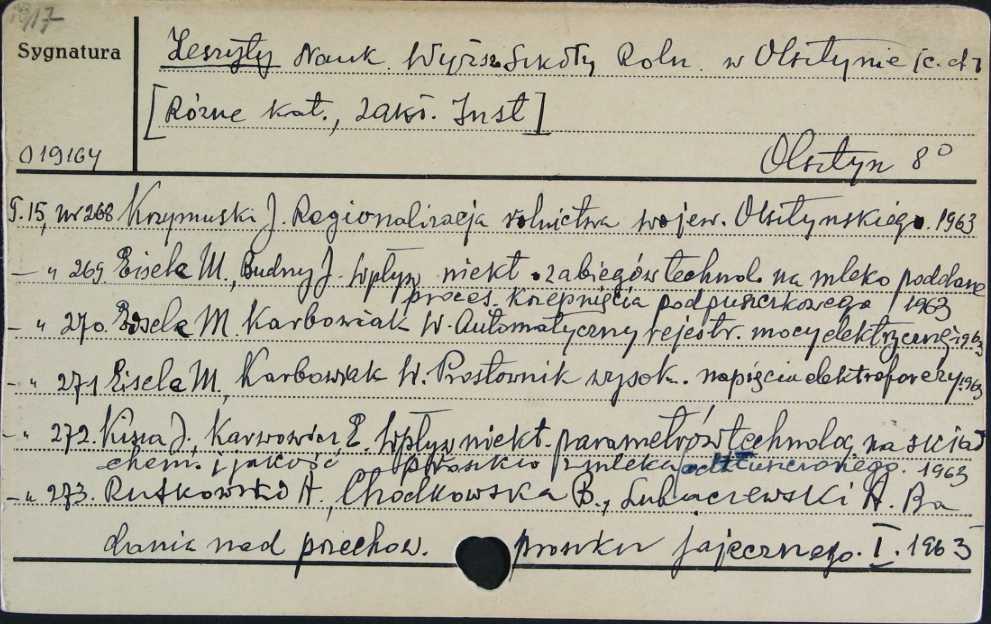 18/17
Sygnatura
Zeszyty Nauk. Wyższ. Szkoły Roln. w Olsztynie /c. d/
[Różne kat., zakł. Inst]
019164
Olsztyn 8°
T. 15, nr 268 Krzymuski J. Regionalizacja rolnictwa wojew. Olsztyńskiego. 1963
— " 269. Eisele M., Budny J. Wpływ niekt. zabiegów technol. na mleko poddane
proces. krzepnięcia podpuszczkowego 1963
— " 270. Eisele M. Karbowiak W. Automatyczny rejestr. mocy elektrycznej 1963
— " 271 Eisele M., Karbowiak W. Prostownik wysok. napięcia elektroforezy 1963
— " 272. Kisza J., Karwowicz E. Wpływ niekt. parametrów technolog. na skład
chem. i jakość proszku z mleka odtłuszczonego. 1963
— " 273. Rutkowski A., Chodkowska B., Lubaczewski A. Ba
dania nad przechow. proszku jajecznego. I. 1963